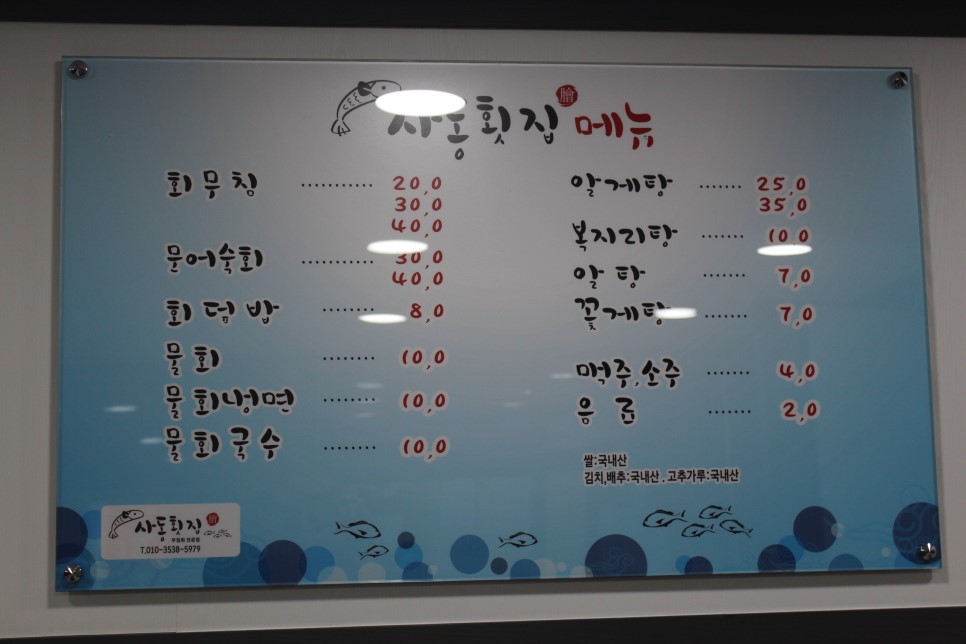 사동횟집 膾 메뉴
회무침 ........... 20,0
30,0
40,0
문어숙회 ........... 30,0
40,0
회덮밥 ........ 8,0
물회 ........ 10,0
물회냉면 ........ 10,0
물회국수 ........ 10,0
알게탕 ....... 25,0
35,0
복지리탕 ....... 10,0
알탕 ....... 7,0
꽃게탕 ....... 7,0
맥주,소주 ....... 4,0
음료 ....... 2,0
쌀:국내산
김치,배추:국내산 . 고추가루:국내산
사동횟집
T.010-3538-5979